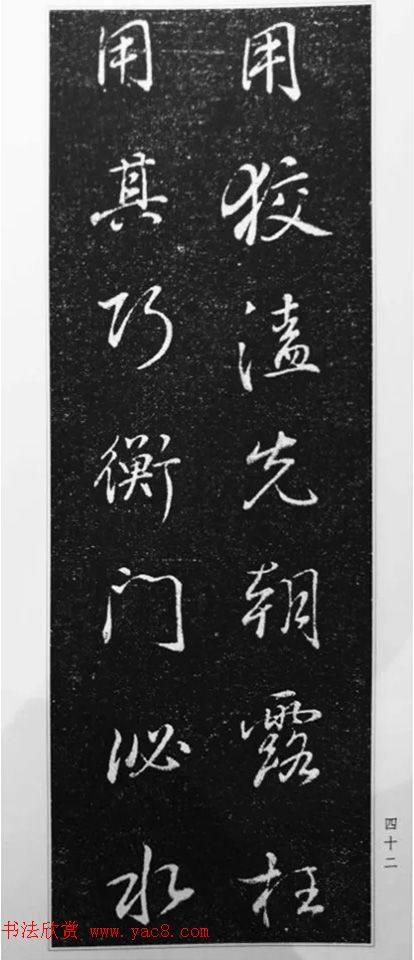 用狡溘先朝露枉
用其巧衡门泌水
四十二
书法欣赏 www.yac8.com